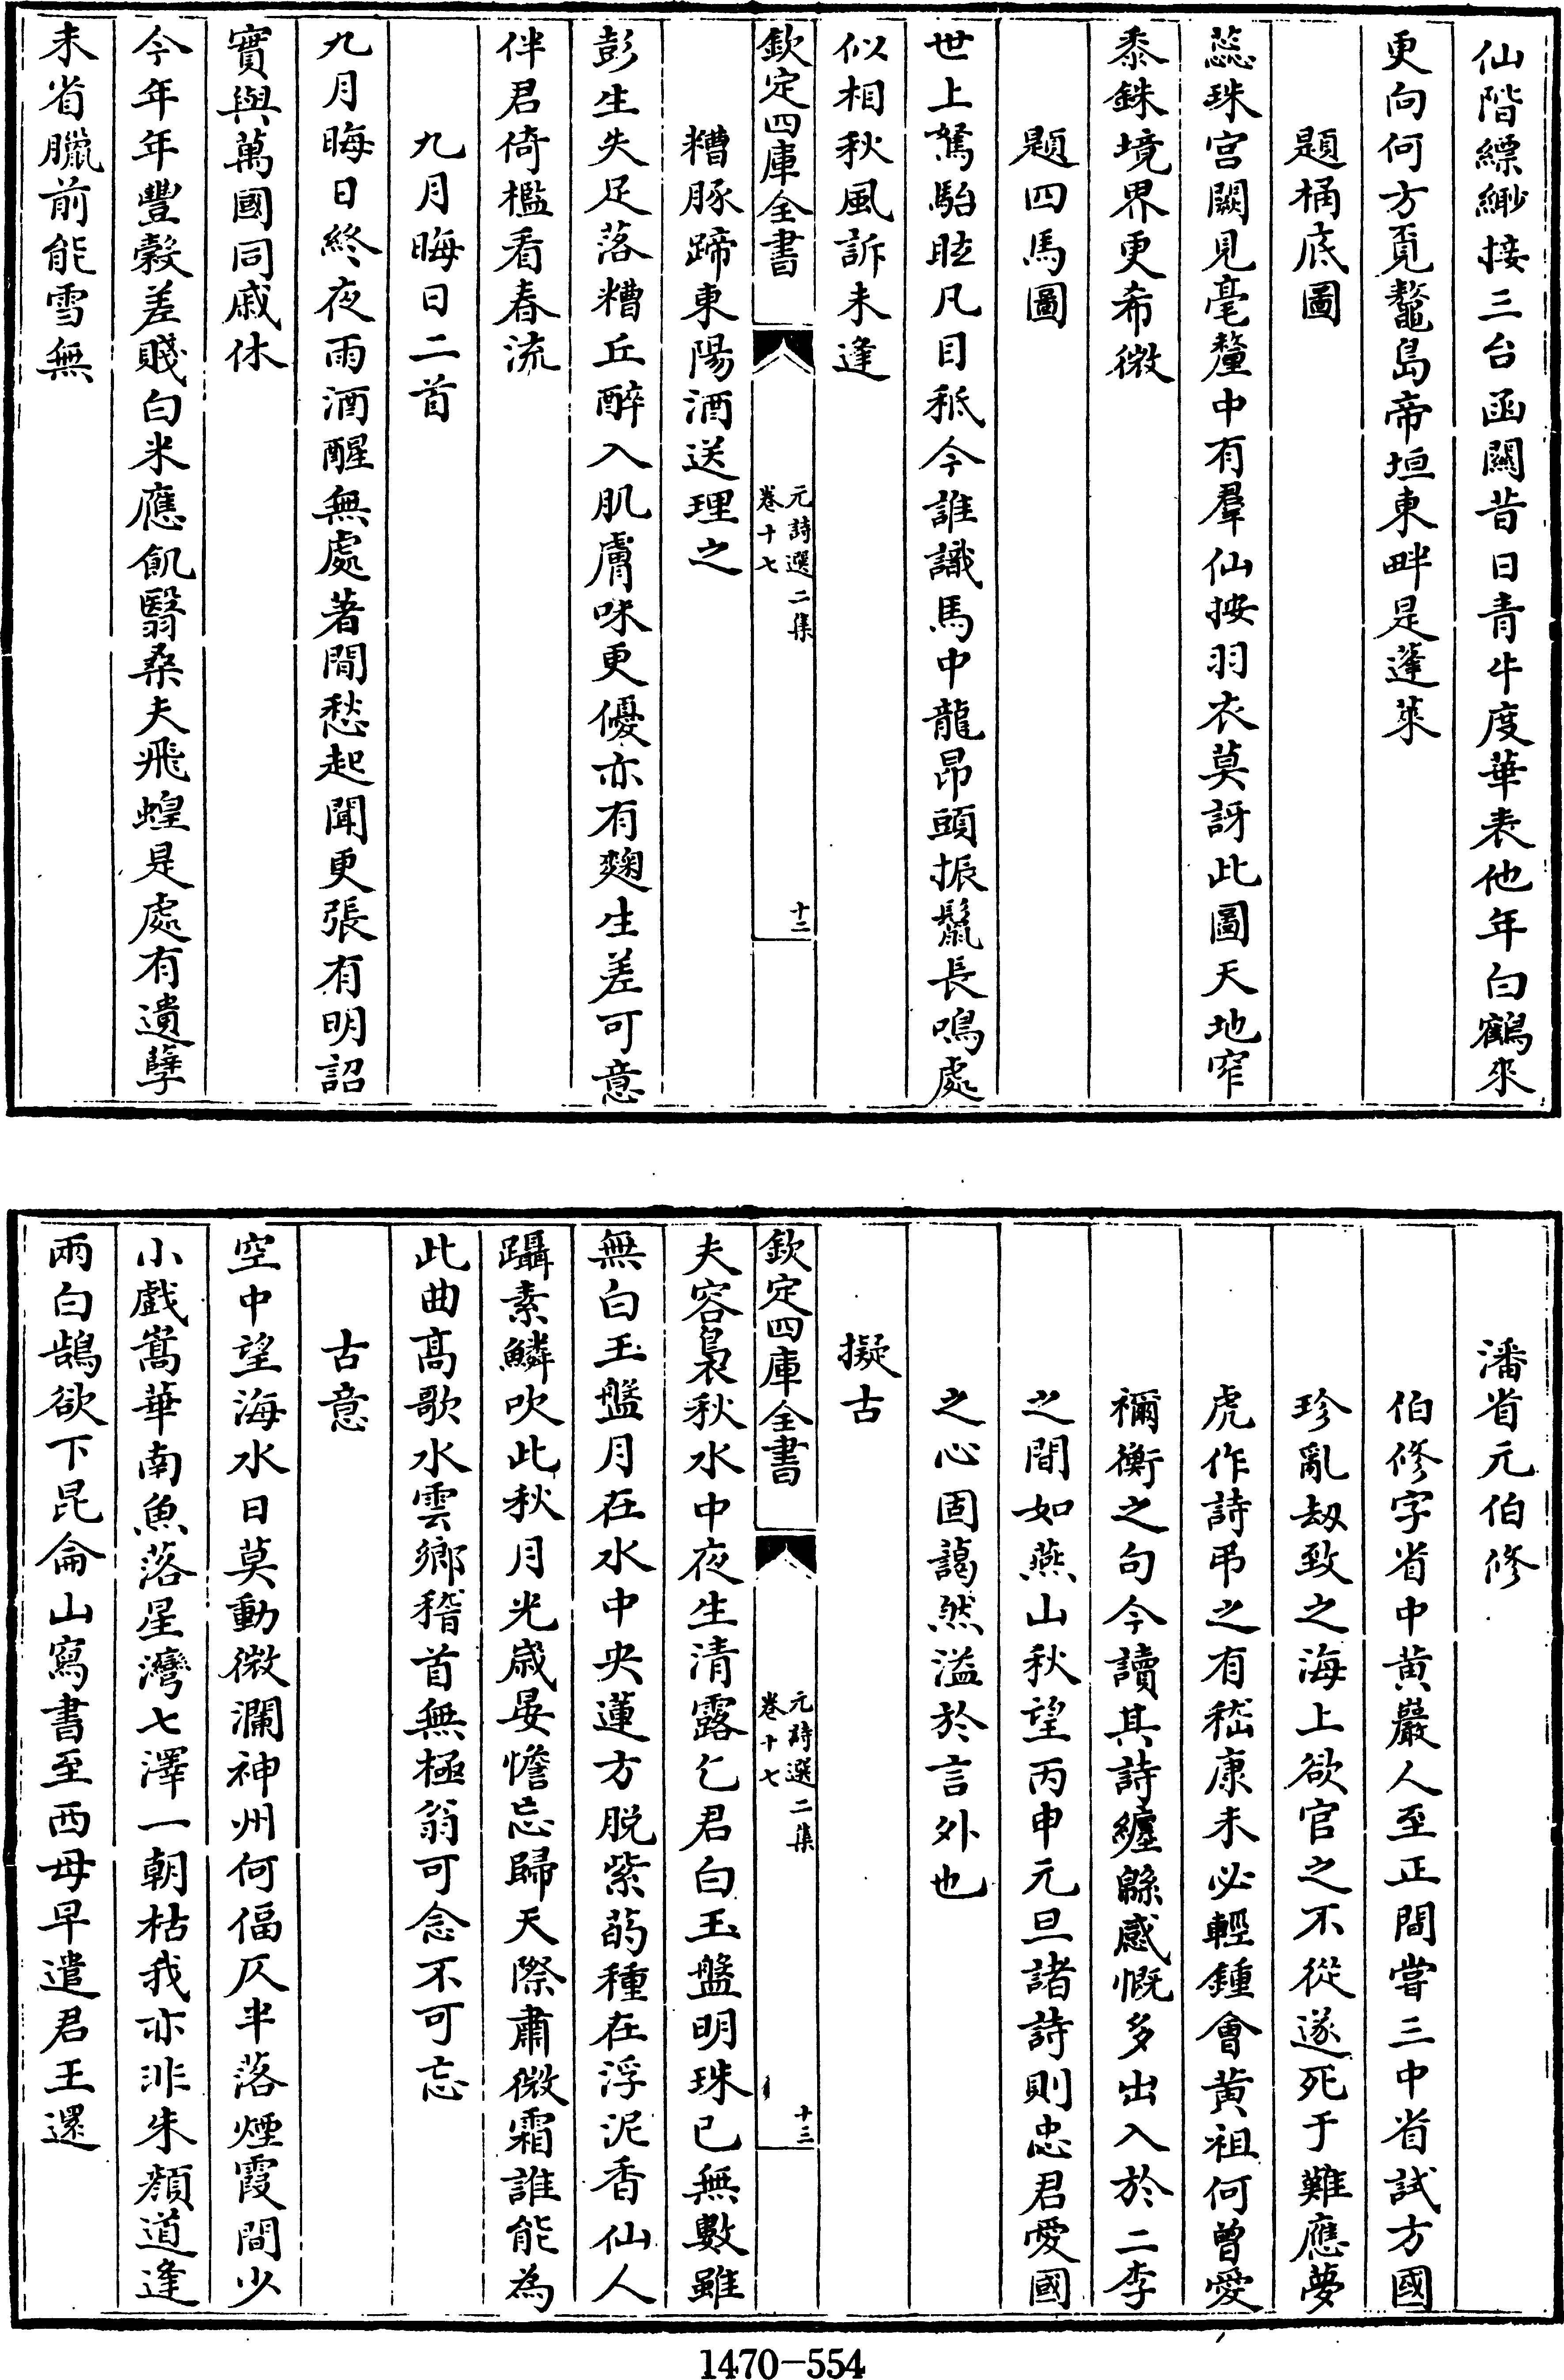 仙階縹緲接三台函關昔日青牛度華表他年白鶴來
更向何方覓鼇島帝垣東畔是蓬萊
題桶底圖
蕊珠宫闕見毫釐中有羣仙按羽衣莫訝此圖天地窄
黍銖境界更希微
題四馬圖
世上駑駘眩凡目秖今誰識馬中龍昂頭振鬛長鳴處
似相秋風訴未逢
欽定四庫全書
元詩選二集
卷十七
十二
糟豚蹄東陽酒送理之
彭生失足落糟丘醉入肌膚味更優亦有麴生差可意
伴君倚檻看春流
九月晦日二首
九月晦日終夜雨酒醒無處著閒愁起聞更張有明詔
實與萬國同戚休
今年年豐穀差賤白米應飢翳桑夫飛蝗是處有遺孽
未省臘前能雪無
潘省元伯修
伯修字省中黄巖人至正間嘗三中省試方國
珍亂刼致之海上欲官之不從遂死于難應夢
虎作詩弔之有嵇康未必輕鍾會黄祖何曾愛
禰衡之句今讀其詩纏緜感慨多出入於二李
之間如燕山秋望丙申元旦諸詩則忠君愛國
之心固藹然溢於言外也
擬古
欽定四庫全書
元詩選二集
卷十七
十三
夫容裊裊秋水中夜生清露乞君白玉盤明珠已無數雖
無白玉盤月在水中央蓮方脱紫菂種在浮泥香仙人
躡素鱗吹此秋月光歲晏憺忘歸天際肅微霜誰能為
此曲髙歌水雲鄉稽首無極翁可念不可忘
古意
空中望海水日莫動微瀾神州何偪仄半落煙霞間少
小戲嵩華南魚落星灣七澤一朝枯我亦非朱顔道逢
兩白鵠欲下昆侖山寫書至西母早遣君王還
1470-554